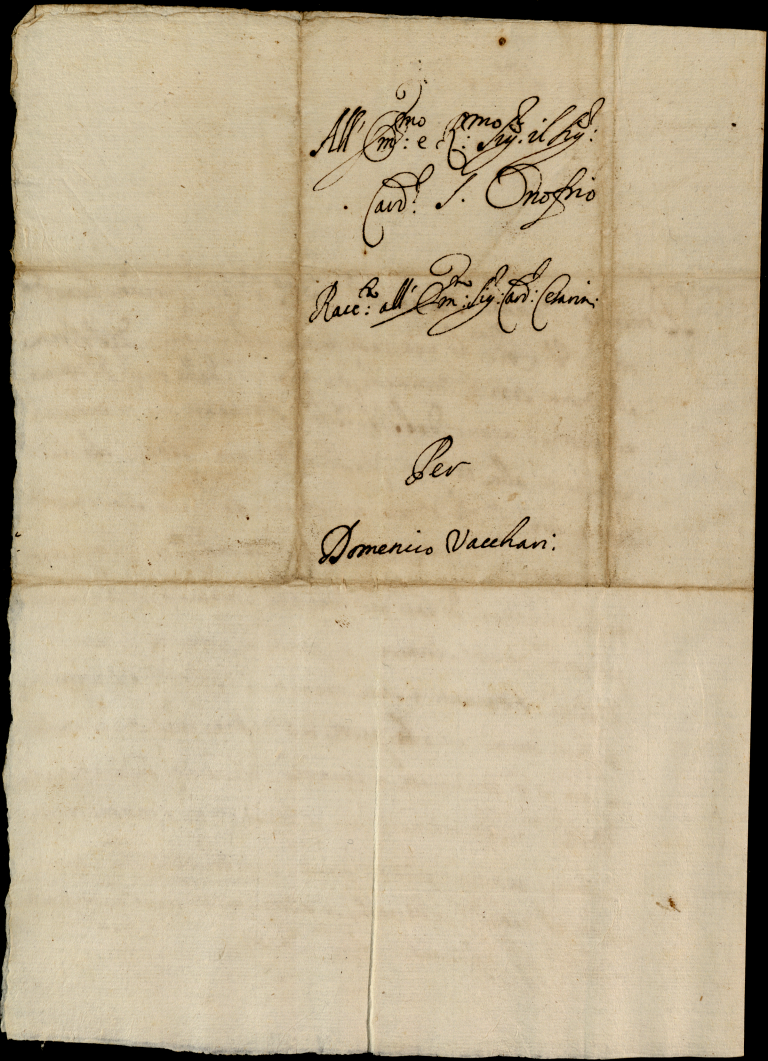 All' Em:mo e R:mo Sig:r il Sig:r
Card:l S. Onofrio
Racc:ta all' Em:mo Sig:r Card:l Cesarini
Per
Domenico Vacchari: